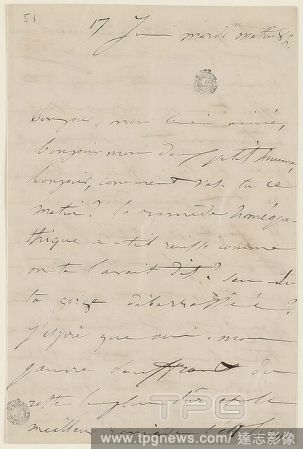 51
17 Juin mardi matin 8h.
bonjour, mon bien aimé,
bonjour mon doux petit homme,
bonjour, comment vas-tu ce
matin? le remède homéopa
thique a-t-il réussi comme
on te l'avait dit?
ta gorge débarrassée?
J'espère que oui, mon
pauvre souffrant du
reste le plus sûr et le
meilleur remède
TPG
www.tpgnews.com/達志影像